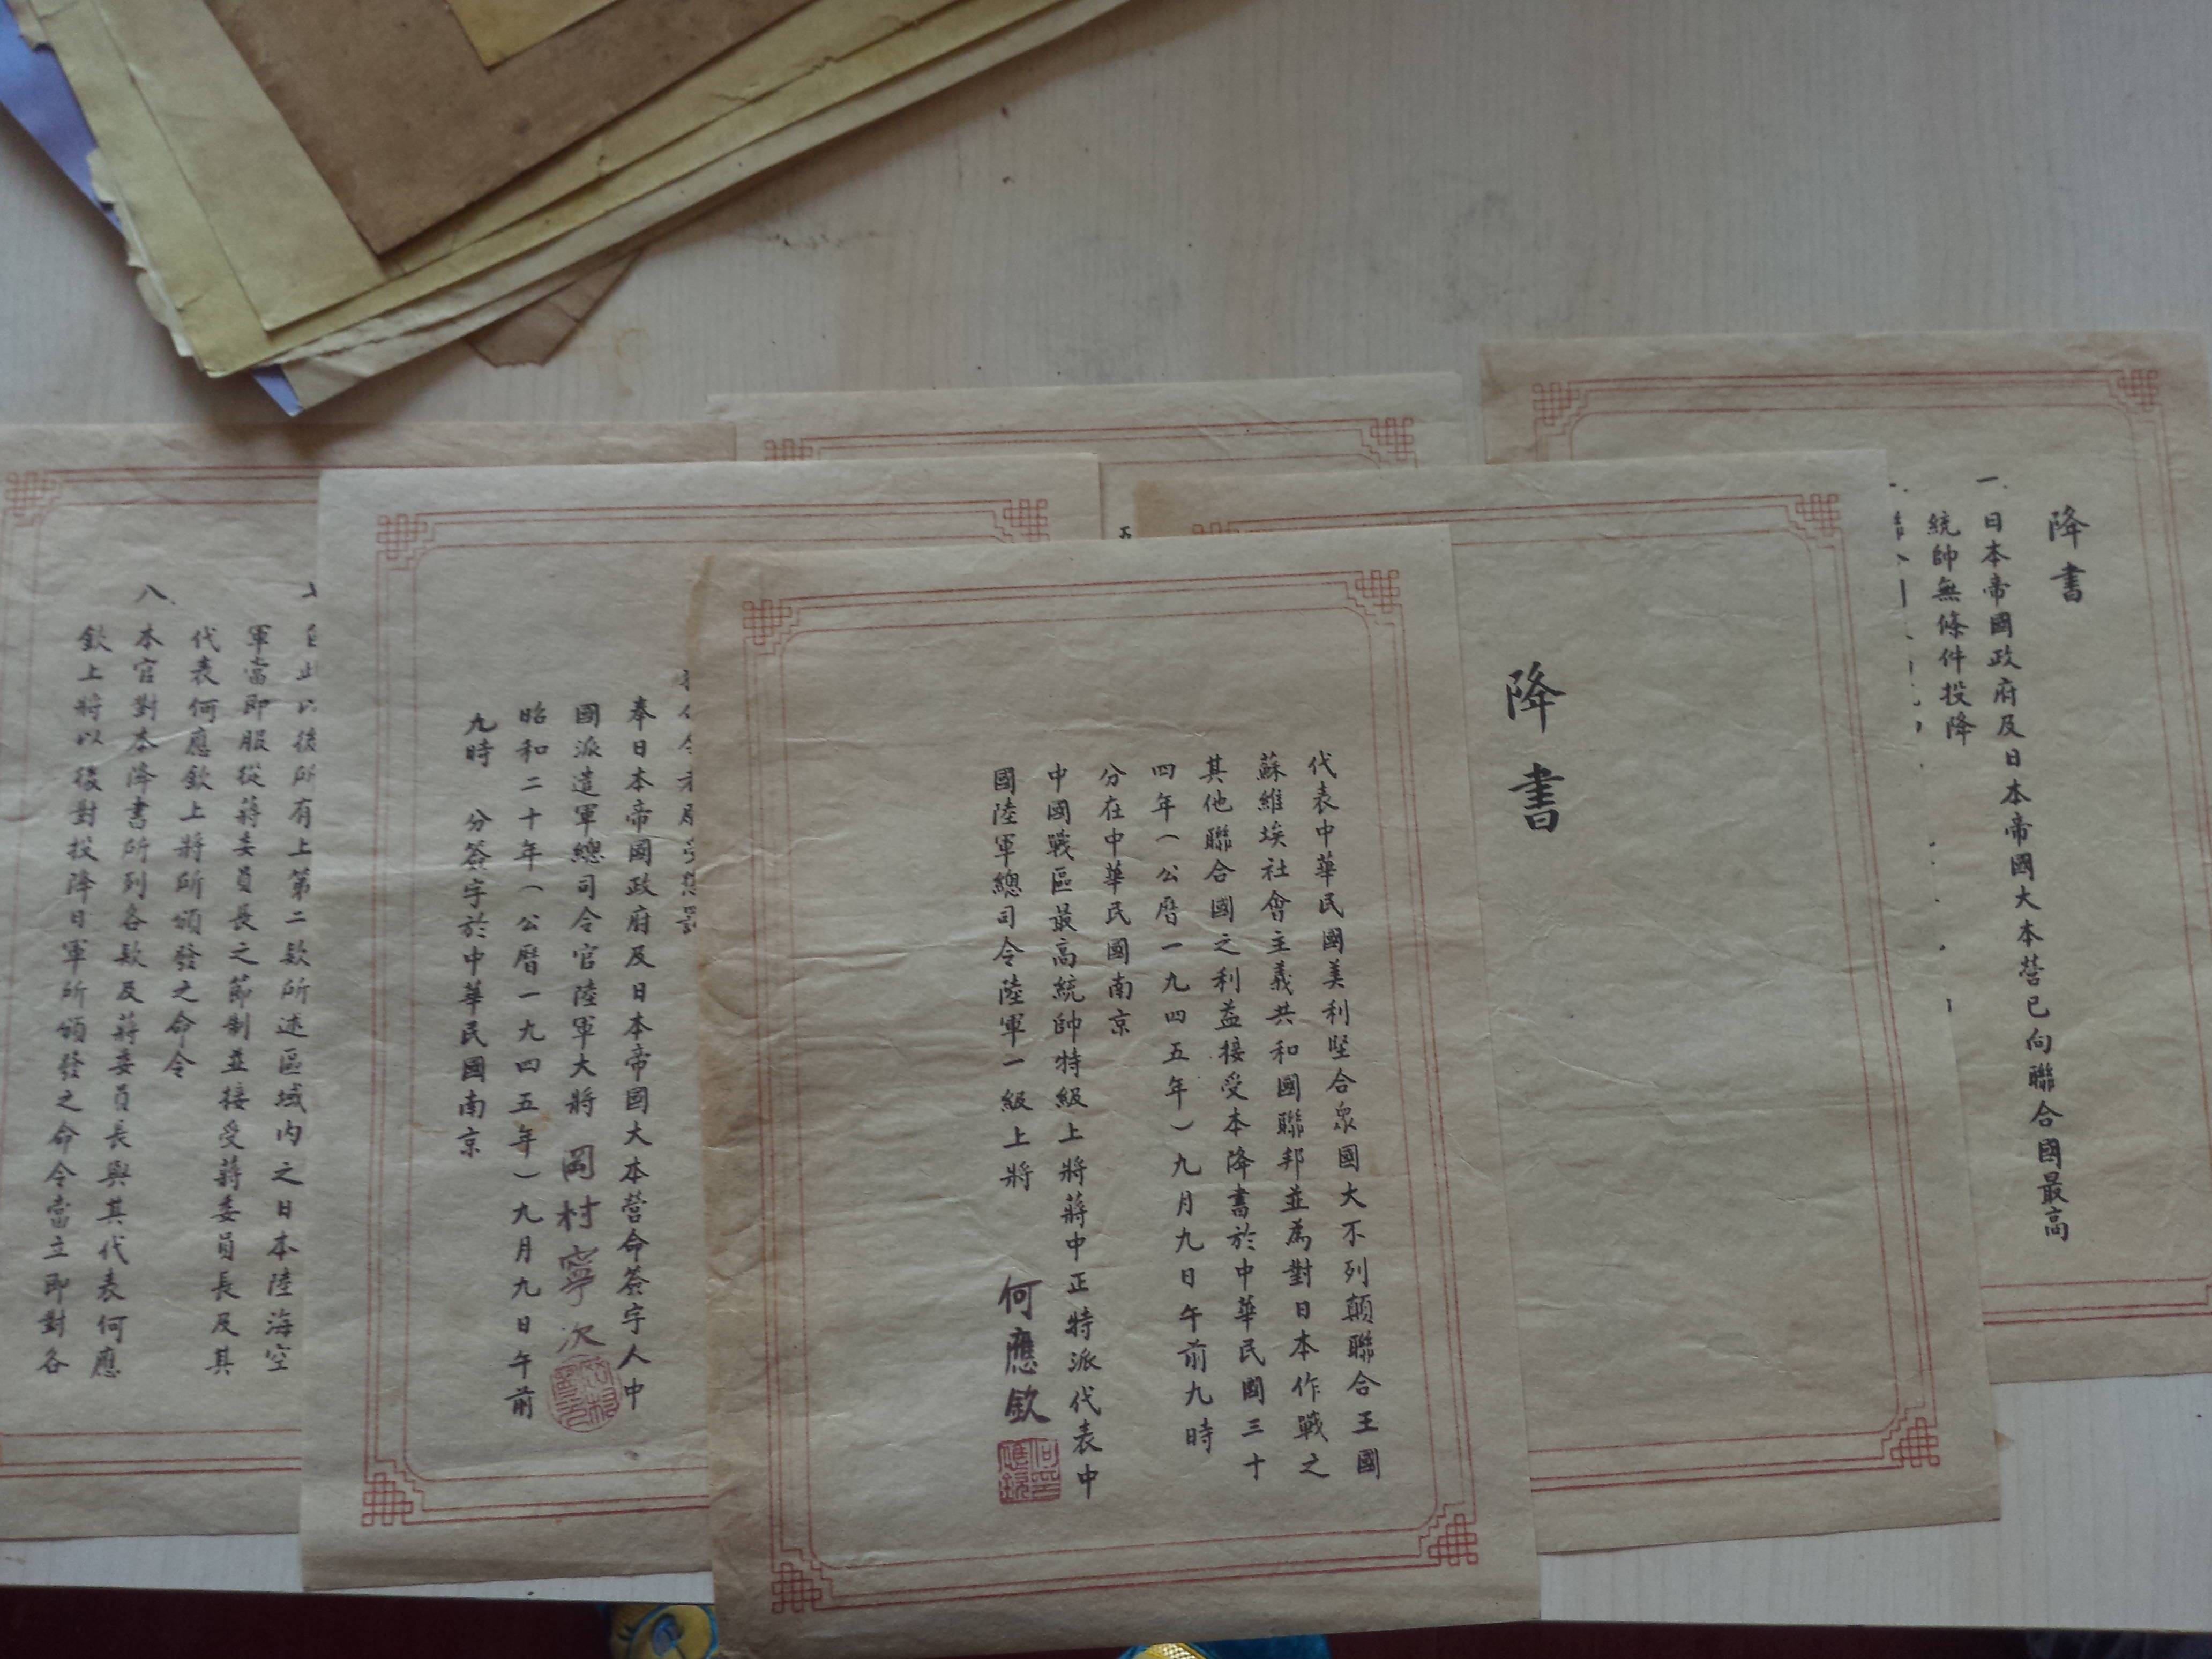 降書
一、日本帝國政府及日本帝國大本營已向聯合國最高
統帥無條件投降
降書
代表中華民國美利堅合衆國大不列顛聯合王國
蘇維埃社會主義共和國聯邦並為對日本作戰之
其他聯合國之利益接受本降書於中華民國三十
四年(公曆一九四五年)九月九日午前九時
分在中華民國南京
中國戰區最高統帥特級上將蔣中正特派代表中
國陸軍總司令陸軍一級上將 何應欽
奉日本帝國政府及日本帝國大本營命簽字人中
國派遣軍總司令官陸軍大將 岡村寧次
昭和二十年(公曆一九四五年)九月九日午前
九時 分簽字於中華民國南京
自此以後所有上第二款所述區域內之日本陸海空
軍當即服從蔣委員長之節制並接受蔣委員長及其
代表何應欽上將所頒發之命令
八、本官對本降書所列各款及蔣委員長與其代表何應
欽上將以後對投降日軍所頒發之命令當立即對各